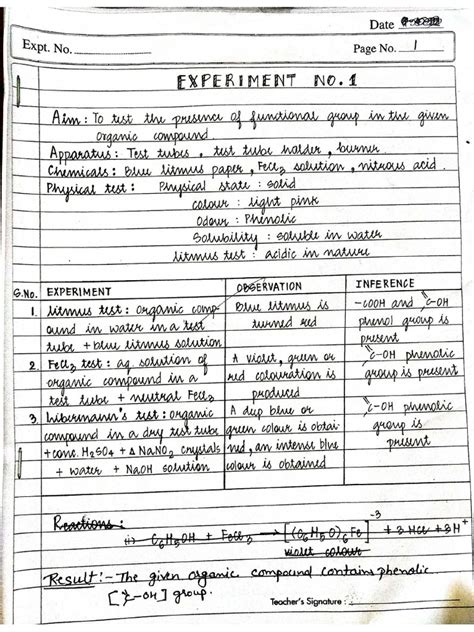 Date
Expt. No.
Page No. 1
EXPERIMENT NO. 1
Aim : To test the presence of functional group in the given
organic compound.
Apparatus : Test tubes, test tube holder, burner
Chemicals : Blue litmus paper, FeCl₃ solution, nitrous acid.
Physical test : Physical state : solid
colour : light pink
Odour : Phenolic
Solubility : soluble in water
litmus test : acidic in nature
S.No. EXPERIMENT OBSERVATION INFERENCE
1. litmus test : organic comp- Blue litmus is -COOH and C-OH
ound in water in a test turned red phenol group is
tube + blue litmus solution present
2. FeCl₃ test : aq. solution of A violet, green or C-OH phenolic
organic compound in a red colouration is group is present
test tube + neutral FeCl₃ produced
3. Libermann's test : organic A deep blue or C-OH phenolic
compound in a dry test tube green colour is obtai- group is
+ conc. H₂SO₄ + Δ NaNO₂ crystals ned, an intense blue present
+ water + NaOH solution colour is obtained
Reactions :
(i) C₆H₅OH + FeCl₃ → [(C₆H₅O)₆Fe]⁻³ + 3HCl + 3H⁺
violet colour
Result :- The given organic compound contains phenolic
[-OH] group.
Teacher's Signature :